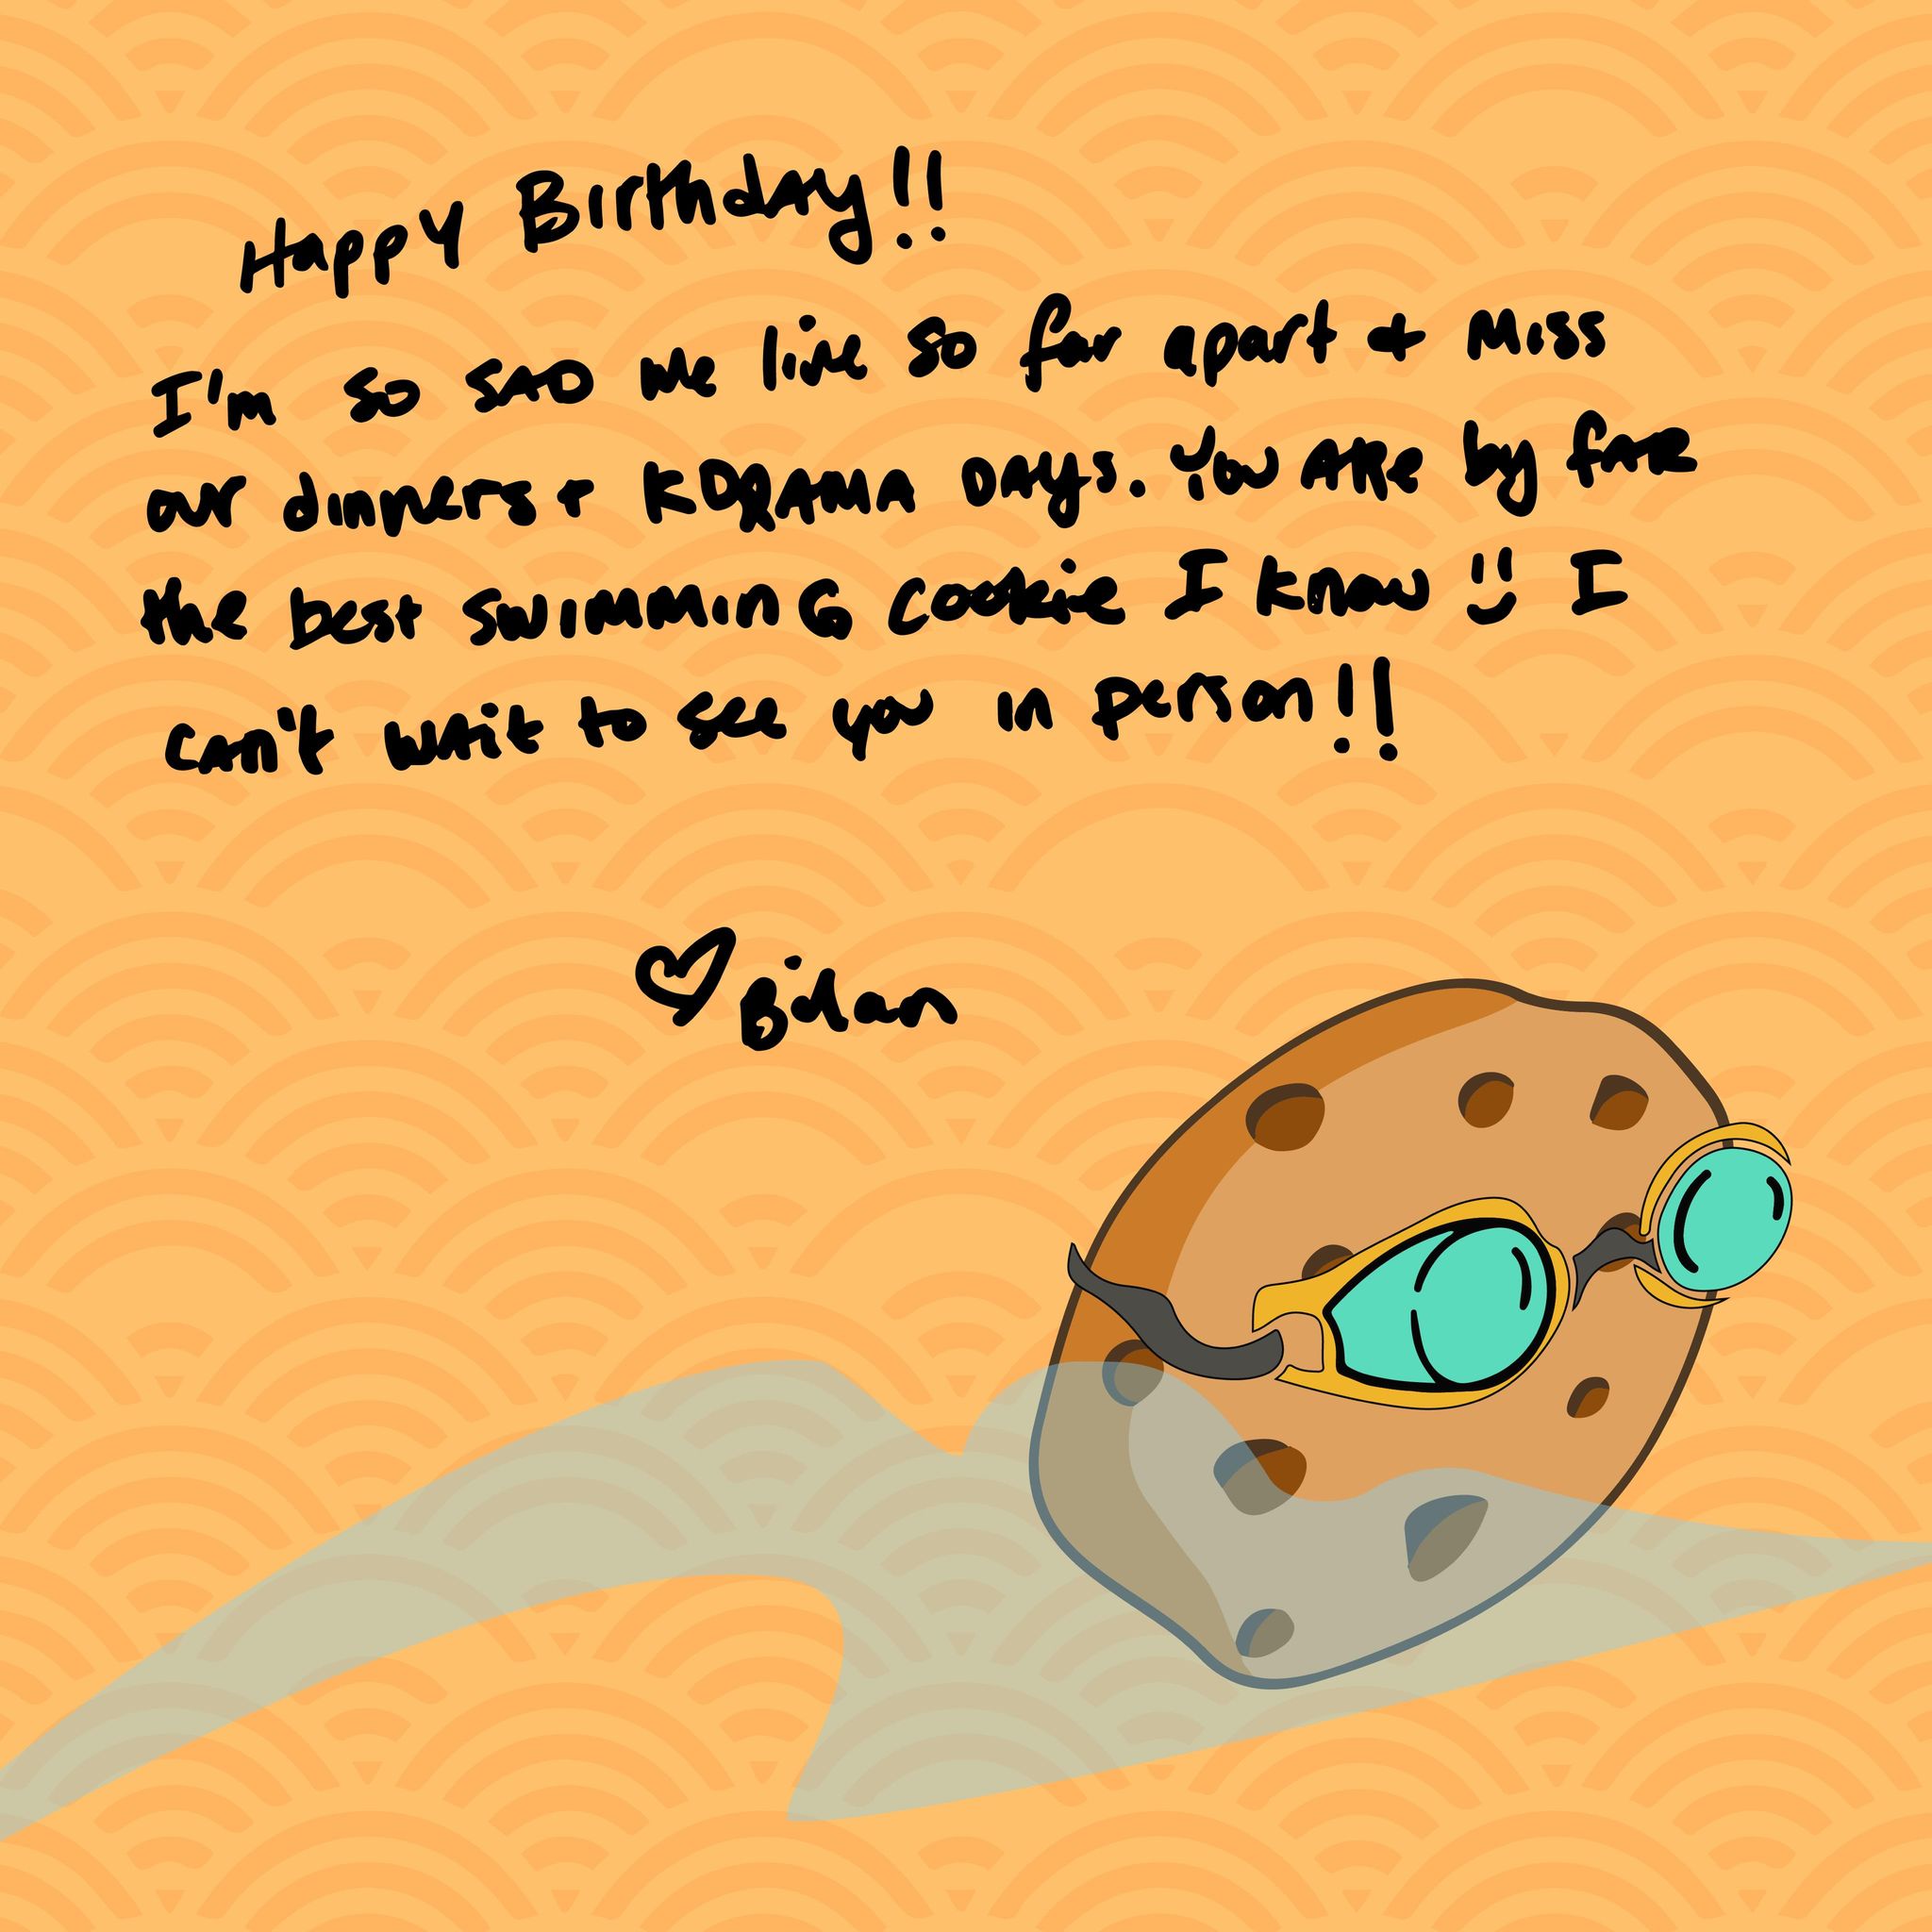 Happy Birthday!!
I'm so SAD we live so far apart + Miss
our dinners + KDRAMA DAYS. You ARE by far
the best swimming cookie I know :) I
can't wait to see you in person!!
♡ Bidan